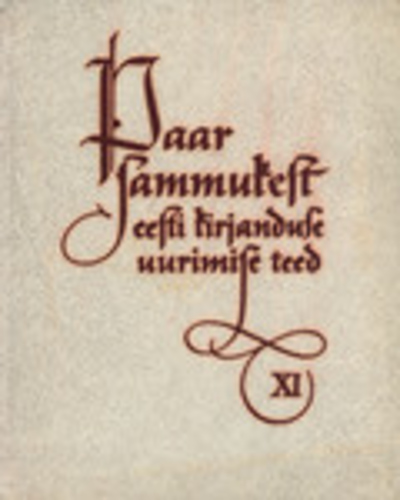 Paar
sammukest
eesti kirjanduse
uurimise teed
XI